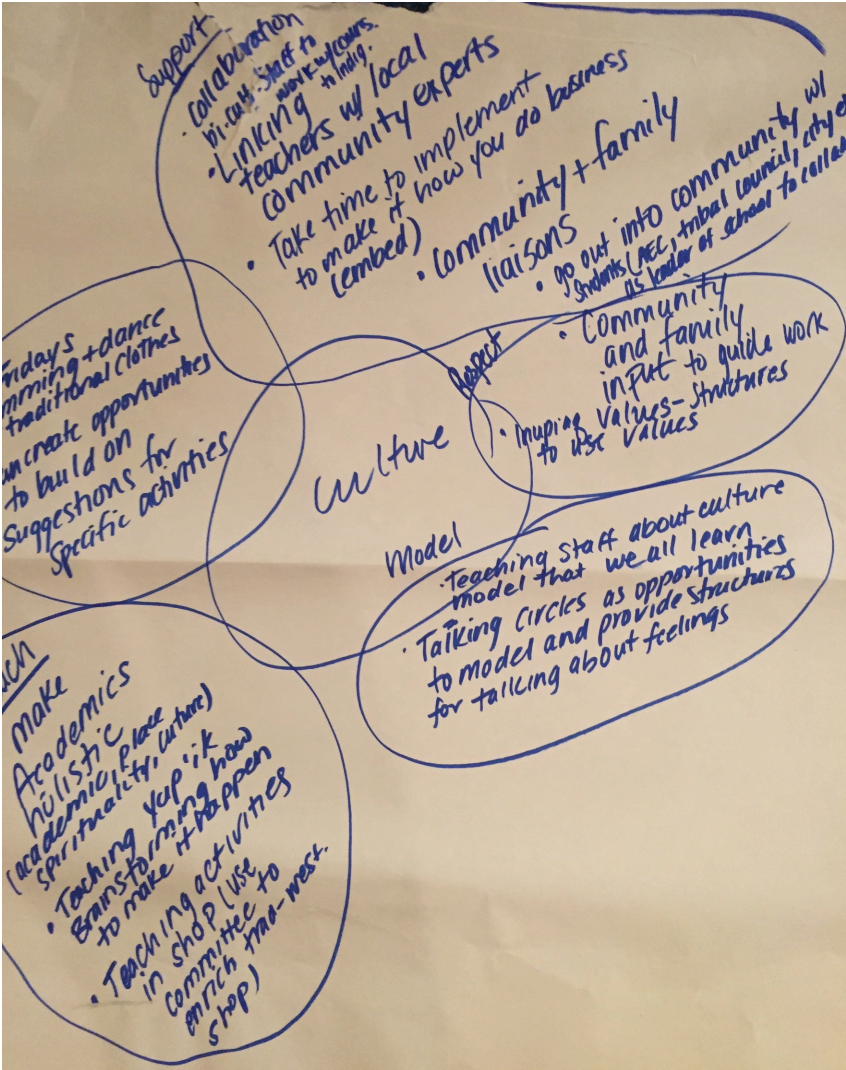 Support
· Collaboration
bi.cult. Staff to
work w/
to Indig.
· Linking
teachers w/ local
community experts
· Take time to implement
to make it how you do business
(embed)
· Community + family
liaisons
· go out into community w/
students (AEC, tribal council, city
as leader of school to
Respect
· Community
and family
input to guide work
· Inupiaq values-structures
to use values
traditional clothes
create opportunities
to build on
Suggestions for
Specific activities
Culture
Model
· Teaching staff about culture
model that we all learn
· Talking Circles as opportunities
to model and provide structures
for talking about feelings
make
Academics
holistic
(academic, place
spirituality, culture)
· Teaching Yup'ik
Brainstorming how
to make it happen
· Teaching activities
in shop (use
committee to
enrich trad-west.
shop)